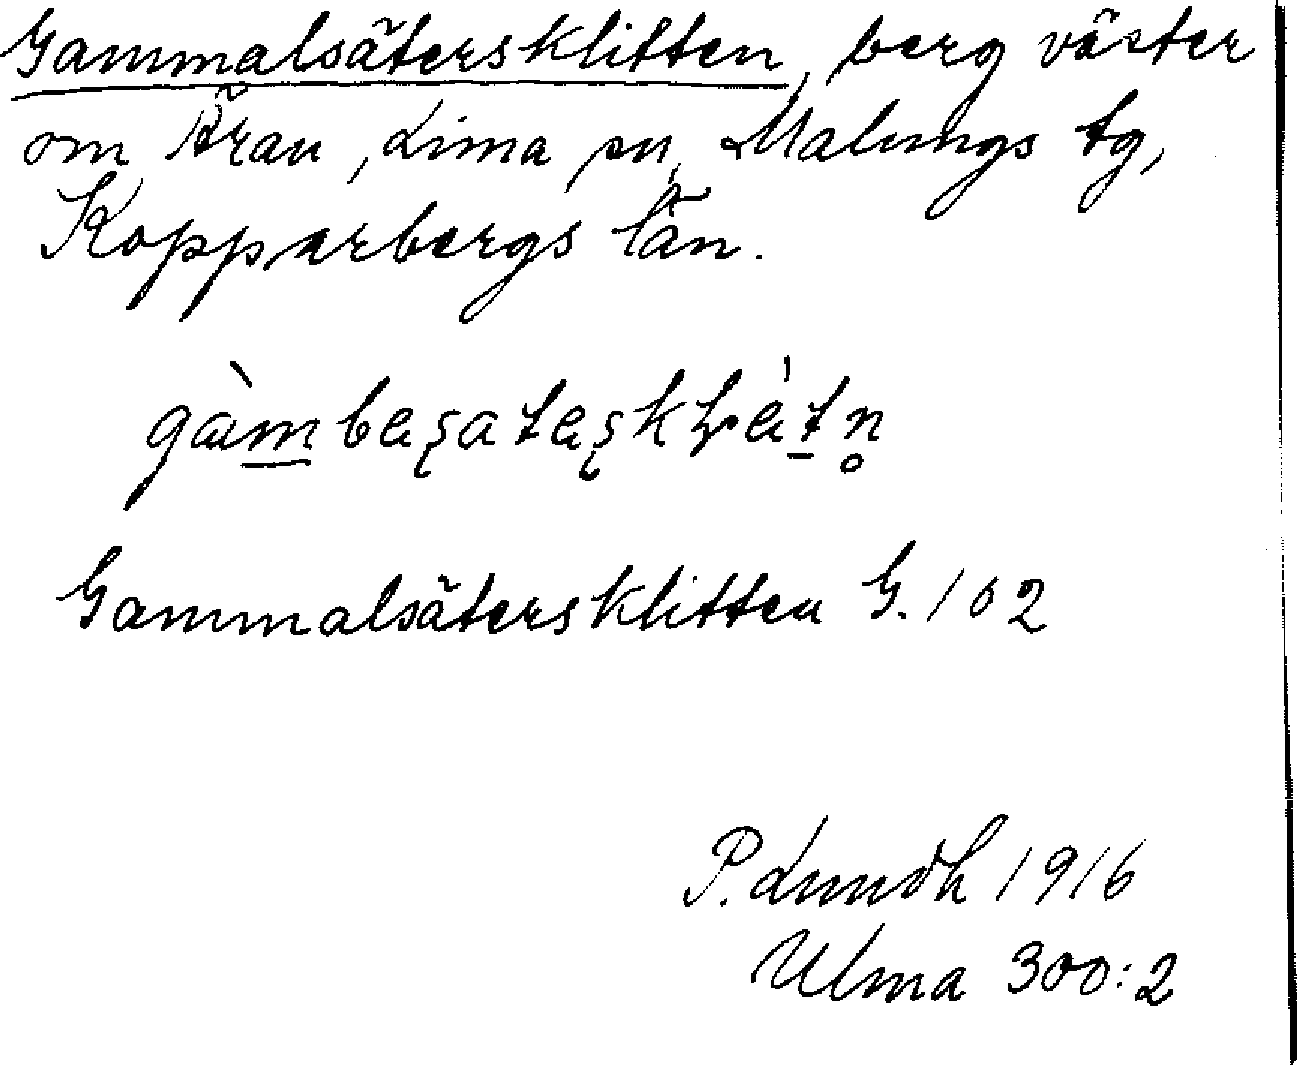 Gammalsätersklitten, berg väster
om Äran, Lima sn, Malungs tg,
Kopparbergs län.
Gammalsätersklitten G. 102
P. Lundh 1916
Ulma 300:2